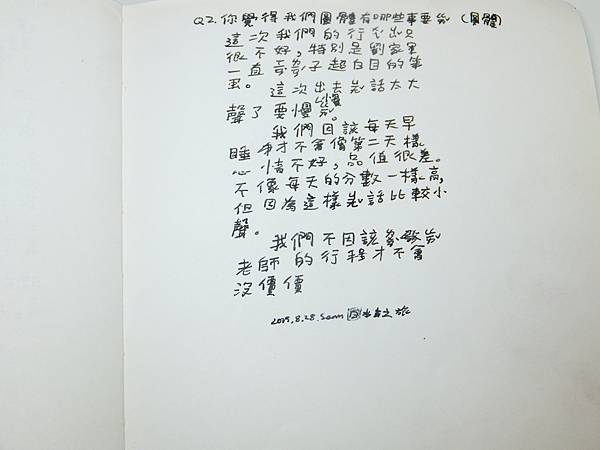 Q2.你覺得我們團體有哪些事要 (團體)
這次我們的行
很不好,特別是劉家軍
一直 子起白目的
虫。 這次出去 話太大
聲了要慢
慢
我們因該每天早
睡 才不會像第二天樣
心情不好,品值很差。
不像每天的分數一樣高,
但因為這樣 話比較小
聲。
我們不因該
老師的行程才不會
沒價價
2015.8.28.Sean 之旅